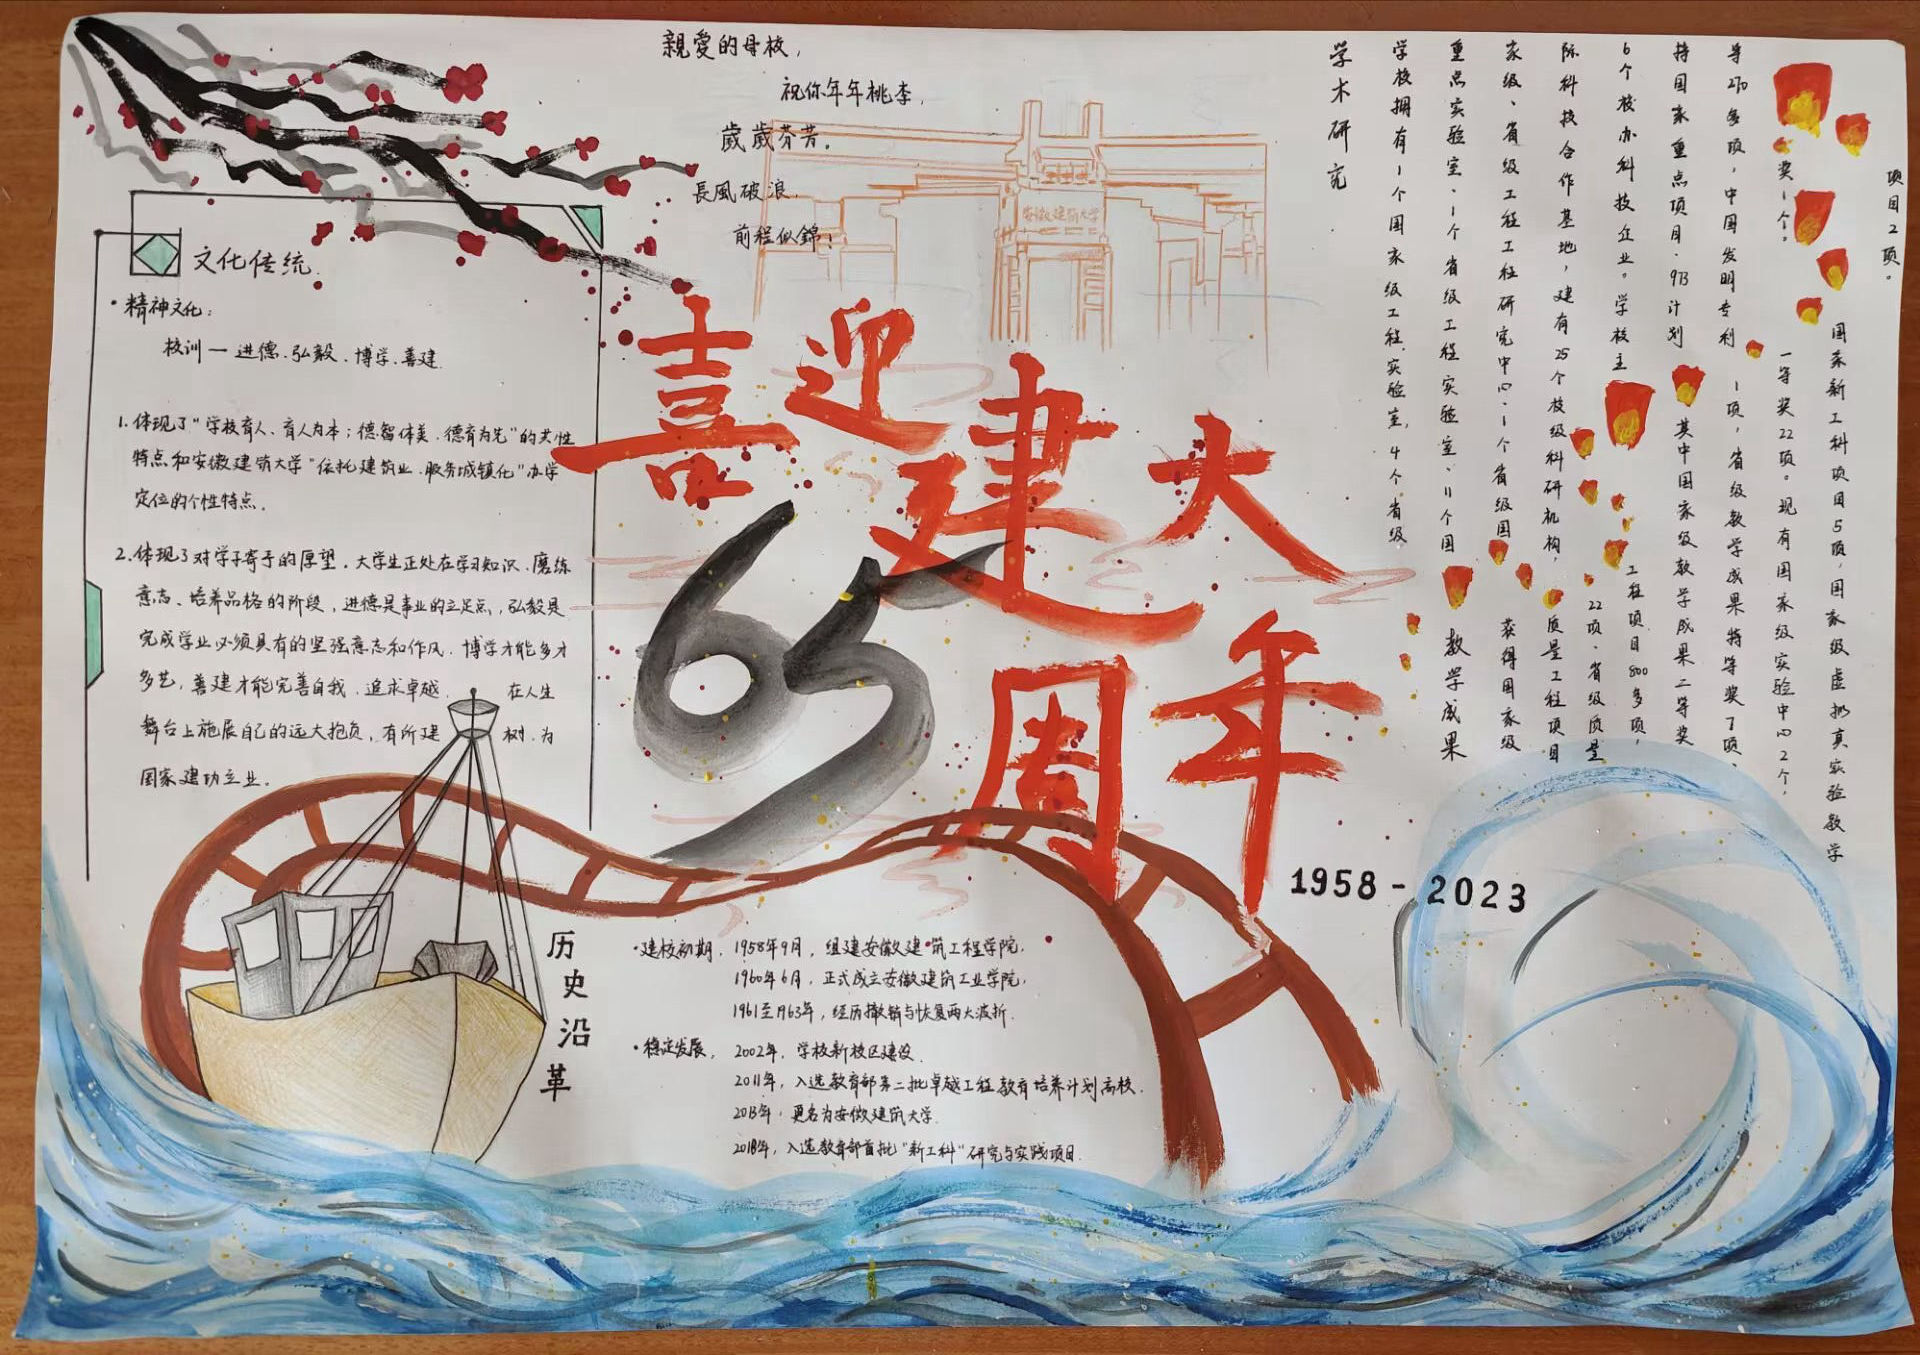 親愛的母校，
祝你年年桃李，
歲歲芬芳。
長風破浪，
前程似錦！
安徽建筑大学
喜迎建大
65
周年
1958-2023
文化传统
·精神文化：
校训—进德、弘毅、博学、善建
1.体现了“学校育人、育人为本；德智体美、德育为先”的共性
特点和安徽建筑大学“依托建筑业、服务城镇化”办学
定位的个性特点。
2.体现了对学子寄予的厚望，大学生正处在学习知识、磨练
意志、培养品格的阶段，进德是事业的立足点，弘毅是
完成学业必须具有的坚强意志和作风，博学才能多才
多艺，善建才能完善自我、追求卓越，在人生
舞台上施展自己的远大抱负，有所建树，为
国家建功立业。
历史沿革
·建校初期，1958年9月，组建安徽建筑工程学院，
1960年6月，正式成立安徽建筑工业学院，
1961至1963年，经历撤销与恢复两大波折.
·稳定发展，2002年，学校新校区建设.
2011年，入选教育部第二批卓越工程教育培养计划高校.
2013年，更名为安徽建筑大学.
2018年，入选教育部首批“新工科”研究与实践项目.
学术研究
学校拥有1个国家级工程实验室，4个省级
重点实验室、1个省级工程实验室、11个国
家级、省级工程工程研究中心、1个省级国
际科技合作基地，建有25个校级科研机构，
6个校办科技企业。学校主
持国家重点项目、973计划
等270多项，中国发明专利
奖1个。
教学成果
获得国家级
质量工程项目
22项、省级质量
工程项目800多项，
其中国家级教学成果二等奖
1项，省级教学成果特等奖7项、
一等奖22项。现有国家级实验中心2个、
国家新工科项目5项，国家级虚拟真实验教学
项目2项。